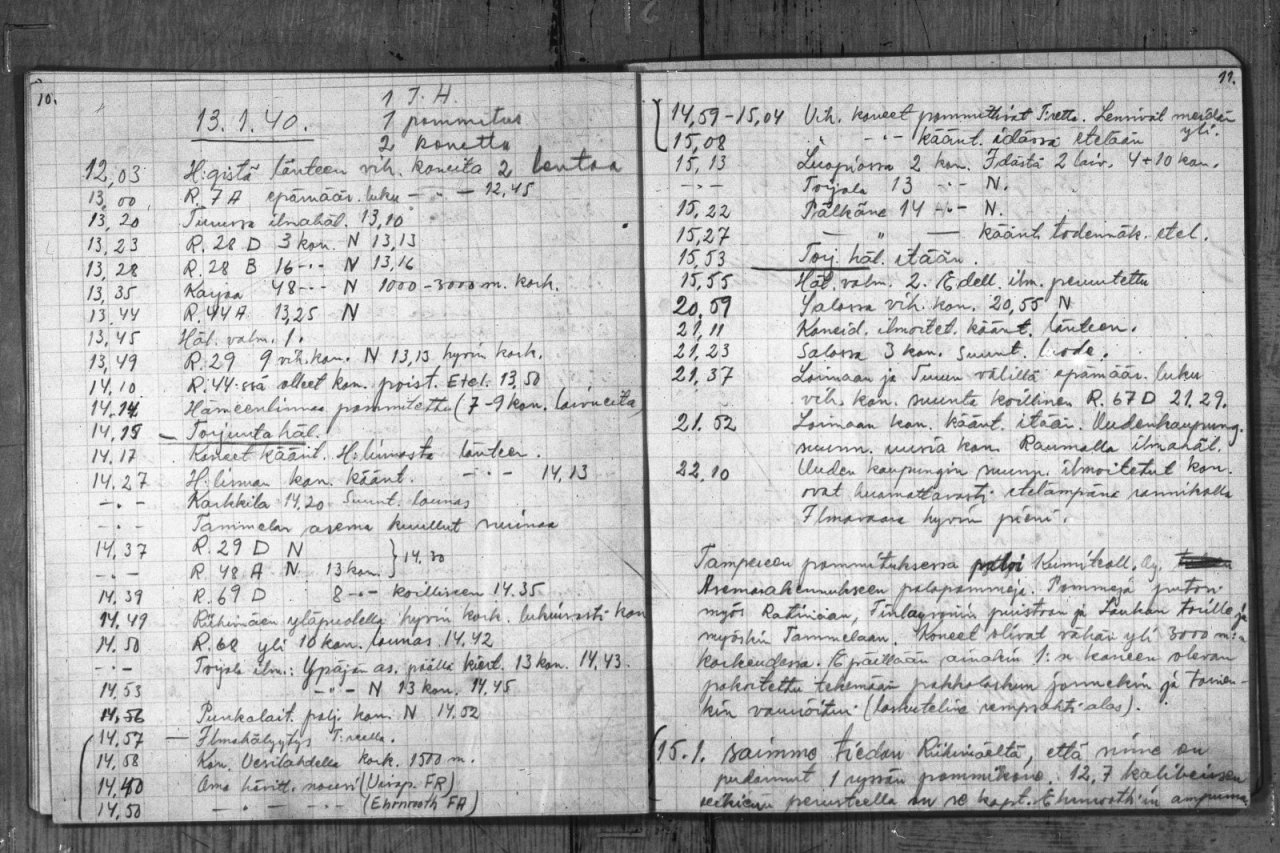 10.
1 I. H.
13.1.40.
1 pommitus
2 konetta
12,03 H:gistä länteen vih. koneita 2 lentää
13,00 R. 7A epämäär. luku - " - 12,45
13,20 Turussa ilmahäl. 13,10
13,23 R. 28 D 3 kon. N 13,13
13,28 R. 28 B 16 -"- N 13,16
13,35 Karjaa 48 -"- N 1000-3000 m. kork.
13,44 R. 44A 13,25 N
13,45 Häl. valm. 1.
13,49 R. 29 9 vih. kon. N 13,13 hyvin kork.
14,10 R. 44:ssä olleet kon. poist. Etel. 13,50
14,14 Hämeenlinnaa pommitettu (7-9 kon. laivueita)
14,15 Torjuntahäl.
14,17 Koneet käänt. H:linnasta länteen.
14,27 H:linnan kon. käänt. -"- 14,13
-"- Karkkila 14,20 Suunt. lounas
-"- Tammelan asema kuullut surinaa
14,37 R. 29 D N } 14,30
-"- R. 48 A N 13 kon.
14,39 R. 69 D 8 -"- koilliseen 14.35
14,49 Riihimäen yläpuolella hyvin kork. lukuisasti kon
14.50 R. 68 yli 10 kon. lounas 14.42
-"- Torjala ilm.: Ypäjän as. päällä kiert. 13 kon. 14,43.
14,53 -"- N 13 kon. 14.45
14,56 Punkalait. palj. kon. N 14.52
14,57 — Ilmahälyytys T:reella.
14,58 Kon. Vesilahdella kork. 1500 m.
14,40 Oma hävitt. nousi (Virsp. FR)
14,50 - " - " - (Ehrnrooth FA)
11.
14,59-15,04 Vih. koneet pommittivat T:retta. Lensivät meidän
yli.
15,08 " -"- käänt. idässä etelään
15,13 Luopiossa 2 kon. Idästä 2 laiv. 4+10 kon.
-"- Torjala 13 -"- N.
15,22 Pälkäne 14 -"- N.
15,27 — " — käänt. todennäk. etel.
15,53 Torj. häl. itään.
15,55 Häl. valm. 2. Edell. ilm. peruutettu
20,59 Salossa vih. kon. 20,55 N
21,11 Koneid. ilmoitet. käänt. länteen.
21,23 Salossa 3 kon. suunt. luode.
21,37 Loimaan ja Turun välillä epämäär. luku
vih. kon. suunta koillinen R. 67D 21,29.
21.52 Loimaan kon. käänt. itään. Uudenkaupung.
suunn. uusia kon. Raumalla ilmahäl.
22,10 Uuden kaupungin suunn. ilmoitetut kon.
ovat huomattavasti etelämpänä rannikolla
Ilmavaara hyvin pieni.
Tampereen pommituksessa paloi Kumikoll. Oy.
Asemarakennukseen palopommeja. Pommeja putosi
myös Ratinaan, Finlaysonin puistoon ja Laukon torille ja
myöskin Tammelaan. Koneet olivat vähän yli 3000 m:n
korkeudessa. Epäillään ainakin 1:n koneen olevan
pakoitettu tekemään pakkolaskun jonnekin ja toisen-
kin vaurioitun. (laskuteline rempsahti alas).
(15.1. saimme tiedon Riihimäeltä, että sinne on
pudonnut 1 ryssän pommikone. 12,7 kaliberisen
reikien perusteella on se kapt. Ehrnrooth'in ampuma